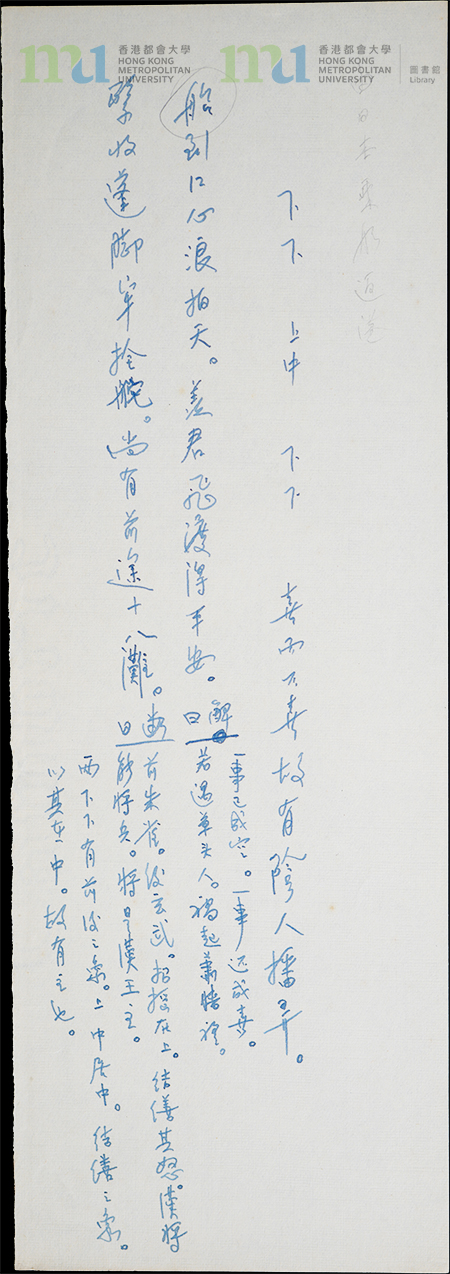 mu 香港都會大學
HONG KONG
METROPOLITAN
UNIVERSITY
mu 香港都會大學
HONG KONG
METROPOLITAN
UNIVERSITY
圖書館
Library
下下 上中 下下 喜而不喜故有陰人播弄。
船到江心浪拍天。羨君飛渡得平安。
解曰
一事已成空。一事还成喜。
若遇草头人。禍起蕭牆裡。
緊收篷脚牢拴。尚有前途十八灘。
斷曰
前朱雀。後玄武。招搖在上。结繕其怒。漢將
能將兵。將是漢王主。
兩下下有前後之象。上中居中。结繕之象。
以其在中。故有主也。